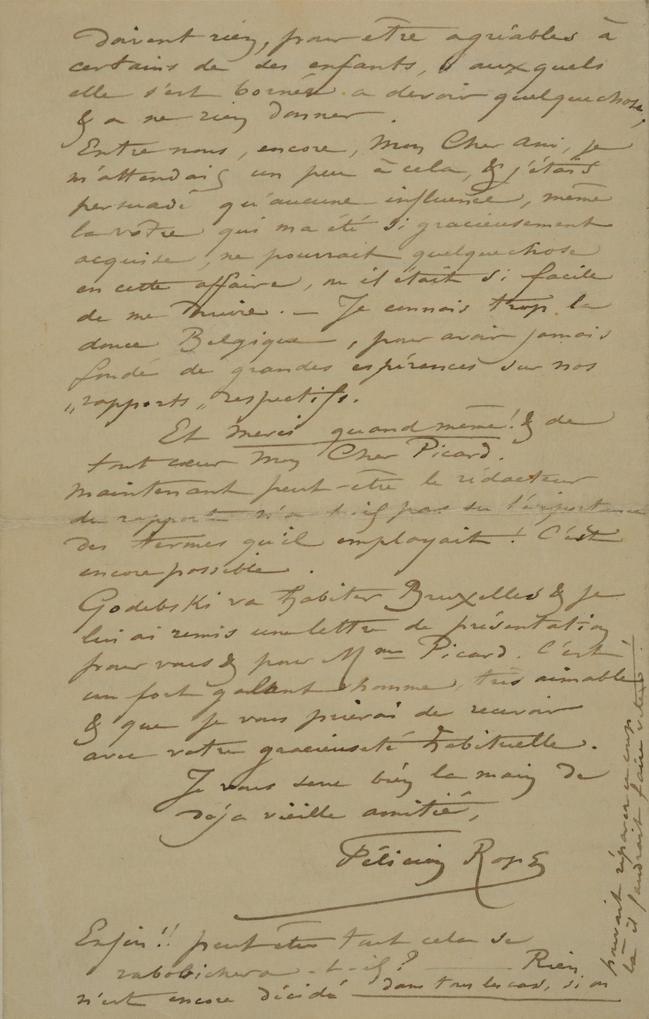 doivent rien, pour être agréables à
certains de des enfants, auxquels
elle s'est bornée a devoir quelquechose,
& a ne rien donner.
Entre nous, encore, Mon Cher Ami, je
m'attendais un peu à cela, & j'étais
persuadé qu'aucune influence, même
la vôtre qui m'a été si gracieusement
acquise, ne pourrait quelquechose
en cette affaire, ou il était si facile
de me nuire. – Je connais trop la
douce Belgique, pour avoir jamais
fondé de grandes espérences sur nos
„rapports„ respectifs.
Et merci quand même! & de
tout cœur Mon Cher Picard.
Maintenant peut-être le rédacteur
du rapport n'a-t-il pas su l'importance
des termes qu'il employait! C'est
encore possible.
Godebski va habiter Bruxelles & je
lui ai remis une lettre de présentation
pour vous & pour Mme Picard. C'est
un fort galant homme, très aimable
& que je vous prierai de recevoir
avec votre gracieuseté habituelle.
Je vous serre bien la main de
déja vieille amitié,
Félicien Rops
Enfin!! peut être tout cela se
rabobichera-t-il? — Rien
n'est encore décidé — dans tous les cas, si on
pouvait réparer un coup
là il faudrait faire